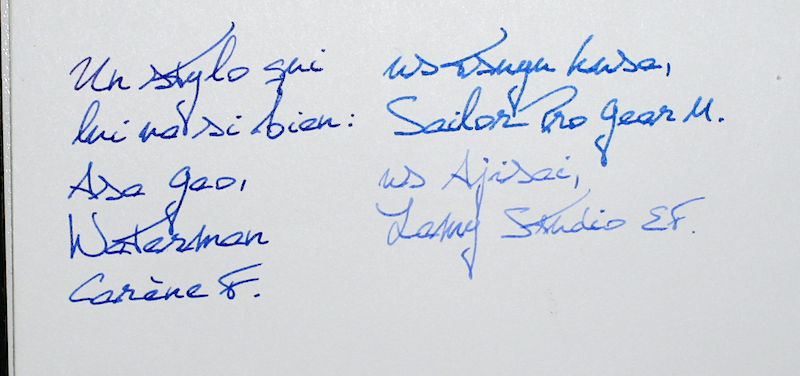 Un stylo qui
lui va si bien :
Asa gao,
Waterman
Carène F.
vs Tsuyu kusa,
Sailor Pro Gear M.
vs Ajisai,
Lamy Studio EF.